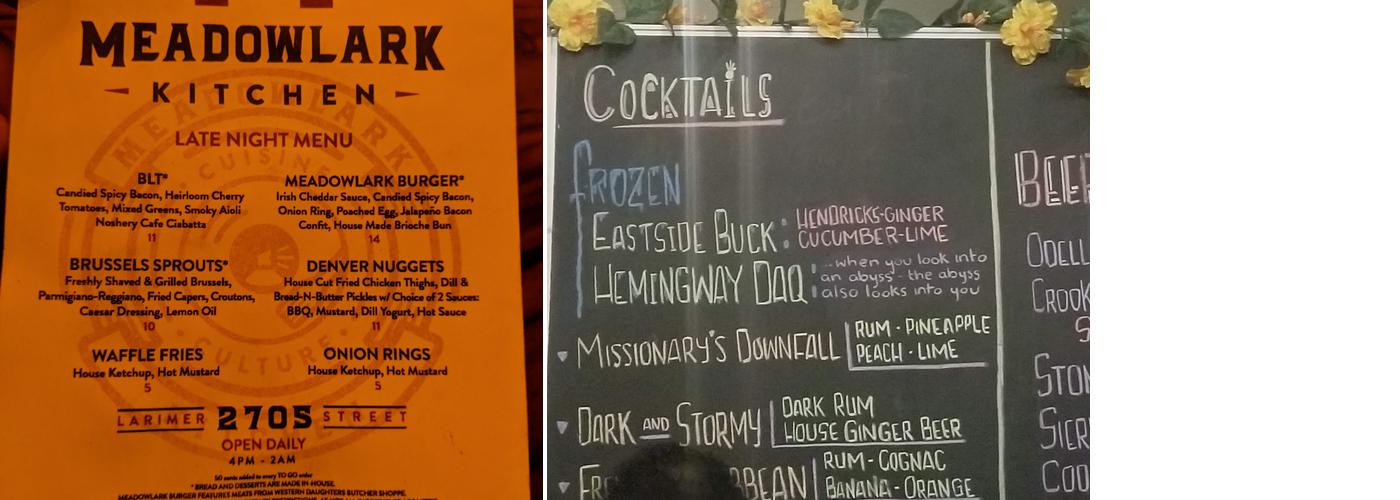 MEADOWLARK
KITCHEN
LATE NIGHT MENU
BLT*
Candied Spicy Bacon, Heirloom Cherry
Tomatoes, Mixed Greens, Smoky Aioli
Noshery Cafe Ciabatta
11
MEADOWLARK BURGER*
Irish Cheddar Sauce, Candied Spicy Bacon,
Onion Ring, Poached Egg, Jalapeño Bacon
Confit, House Made Brioche Bun
14
BRUSSELS SPROUTS*
Freshly Shaved & Grilled Brussels,
Parmigiano-Reggiano, Fried Capers, Croutons,
Caesar Dressing, Lemon Oil
10
DENVER NUGGETS
House Cut Fried Chicken Thighs, Dill &
Bread-N-Butter Pickles w/ Choice of 2 Sauces:
BBQ, Mustard, Dill Yogurt, Hot Sauce
11
WAFFLE FRIES
House Ketchup, Hot Mustard
5
ONION RINGS
House Ketchup, Hot Mustard
5
LARIMER 2705 STREET
OPEN DAILY
4PM - 2AM
50 cents added to every TO GO order
* BREAD AND DESSERTS ARE MADE IN-HOUSE.
MEADOWLARK BURGER FEATURES MEATS FROM WESTERN DAUGHTERS BUTCHER SHOPPE.
MEADOWLARK
CUISINE
CULTURE
COCKTAILS
FROZEN
EASTSIDE BUCK: HENDRICKS-GINGER
CUCUMBER-LIME
HEMINGWAY DAQ: ...when you look into
an abyss - the abyss
also looks into you
MISSIONARY'S DOWNFALL RUM · PINEAPPLE
PEACH · LIME
DARK AND STORMY DARK RUM
HOUSE GINGER BEER
RUM-COGNAC
BANANA-ORANGE
ODELL